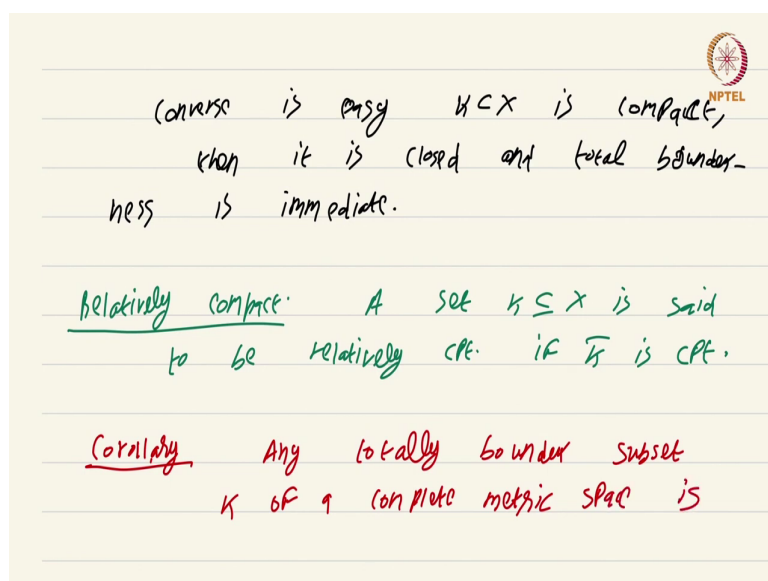 NPTEL
Converse is easy K ⊂ X is compact,
then it is closed and total bounded-
ness is immediate.
Relatively compact. A set K ⊆ X is said
to be relatively cpt. if K̅ is cpt.
Corollary Any totally bounded subset
K of a complete metric space is